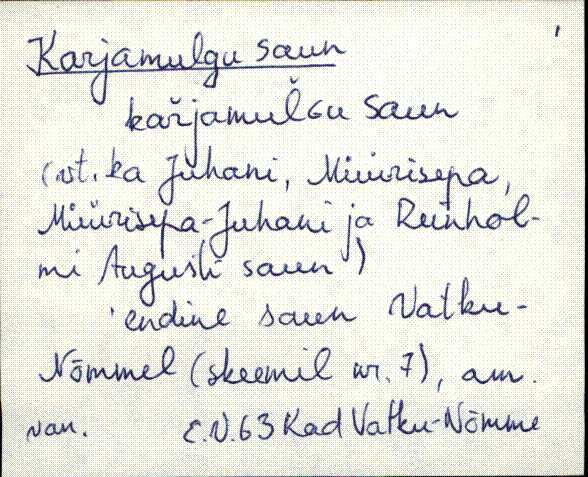 Karjamulgu saun
kařjamulGu saun
(vt. ka Juhani, Müürisepa,
Müürisepa-Juhani ja Reinhol-
mi Augusti saun)
'endine saun Vatku-
Nõmmel (skeemil nr. 7), am.
van. E.V.63 Kad Vatku-Nõmme